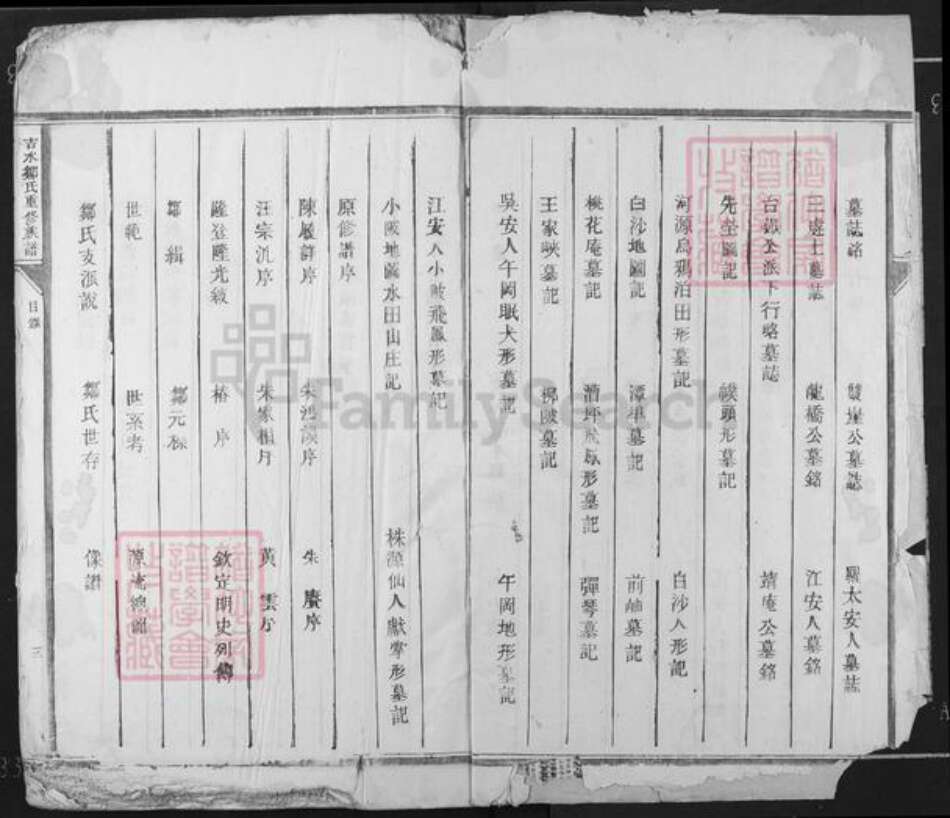 墓誌銘 雙崖公墓誌 羅太安人墓誌
二處士墓誌 龍橋公墓銘 江安人墓銘
公派下行略墓誌 靖庵公墓銘
先塋圖記 頭形墓記
河源烏鴉泊田形墓記 白沙人形記
白沙地圖記 潭 墓記 前岫墓記
桃花庵墓記 形墓記 彈琴墓記
王家峽墓記 墓記
吳安人午岡眠犬形墓記 午岡地形墓記
江安人小陂飛鳳形墓記
小陂地圖水田山庄記 株源仙人獻掌形墓記
原修譜序
陳 序 朱 序 朱賡序
汪宗 序 朱 黃 雲序
隆登隆光敘 椿 序 欽定明史列傳
鄒緝 鄒元標
世範 世系考 源流總
鄒氏支派說 鄒氏世存 像讚
吉水鄒氏重修族譜
目錄
三
FamilySearch